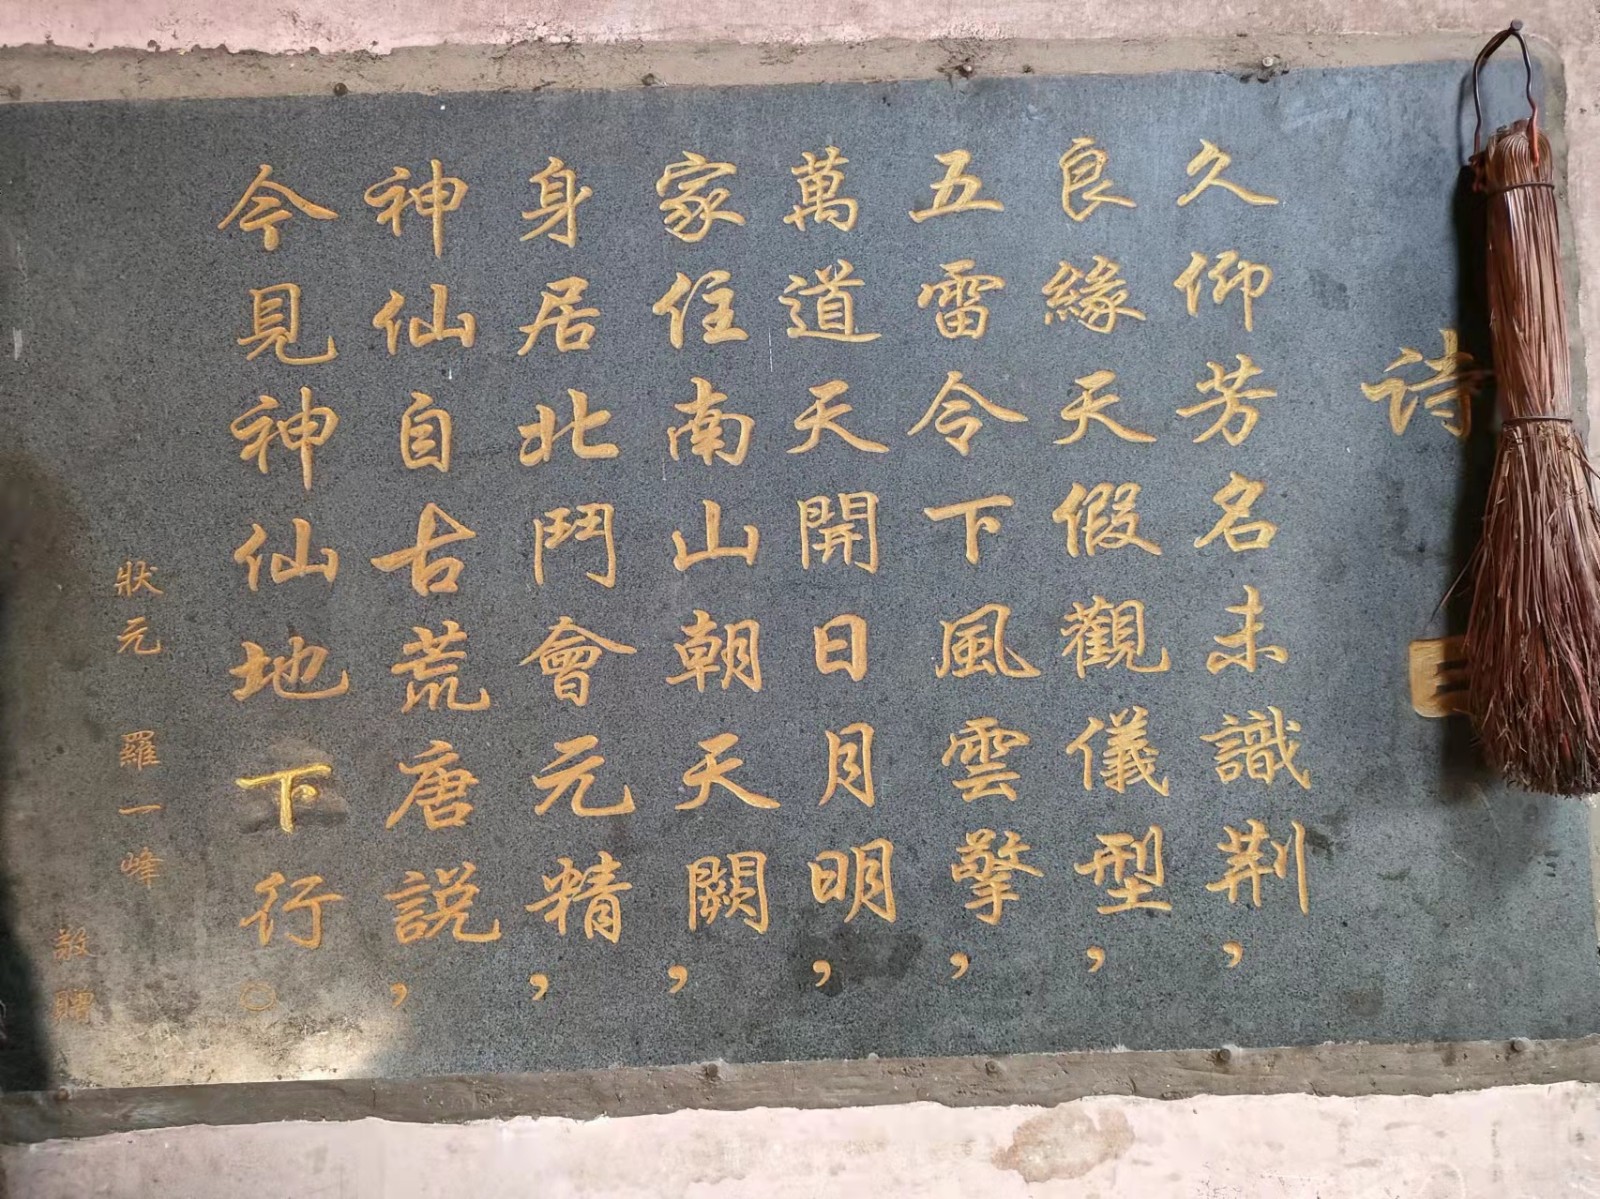 詩
久仰芳名未識荆，
良緣天假觀儀型，
五雷令下風雲擎，
萬道天開日月明，
家住南山朝天闕，
身居北鬥會元精，
神仙自古荒唐説，
今見神仙地下行。
狀元 羅一峰
敬贈